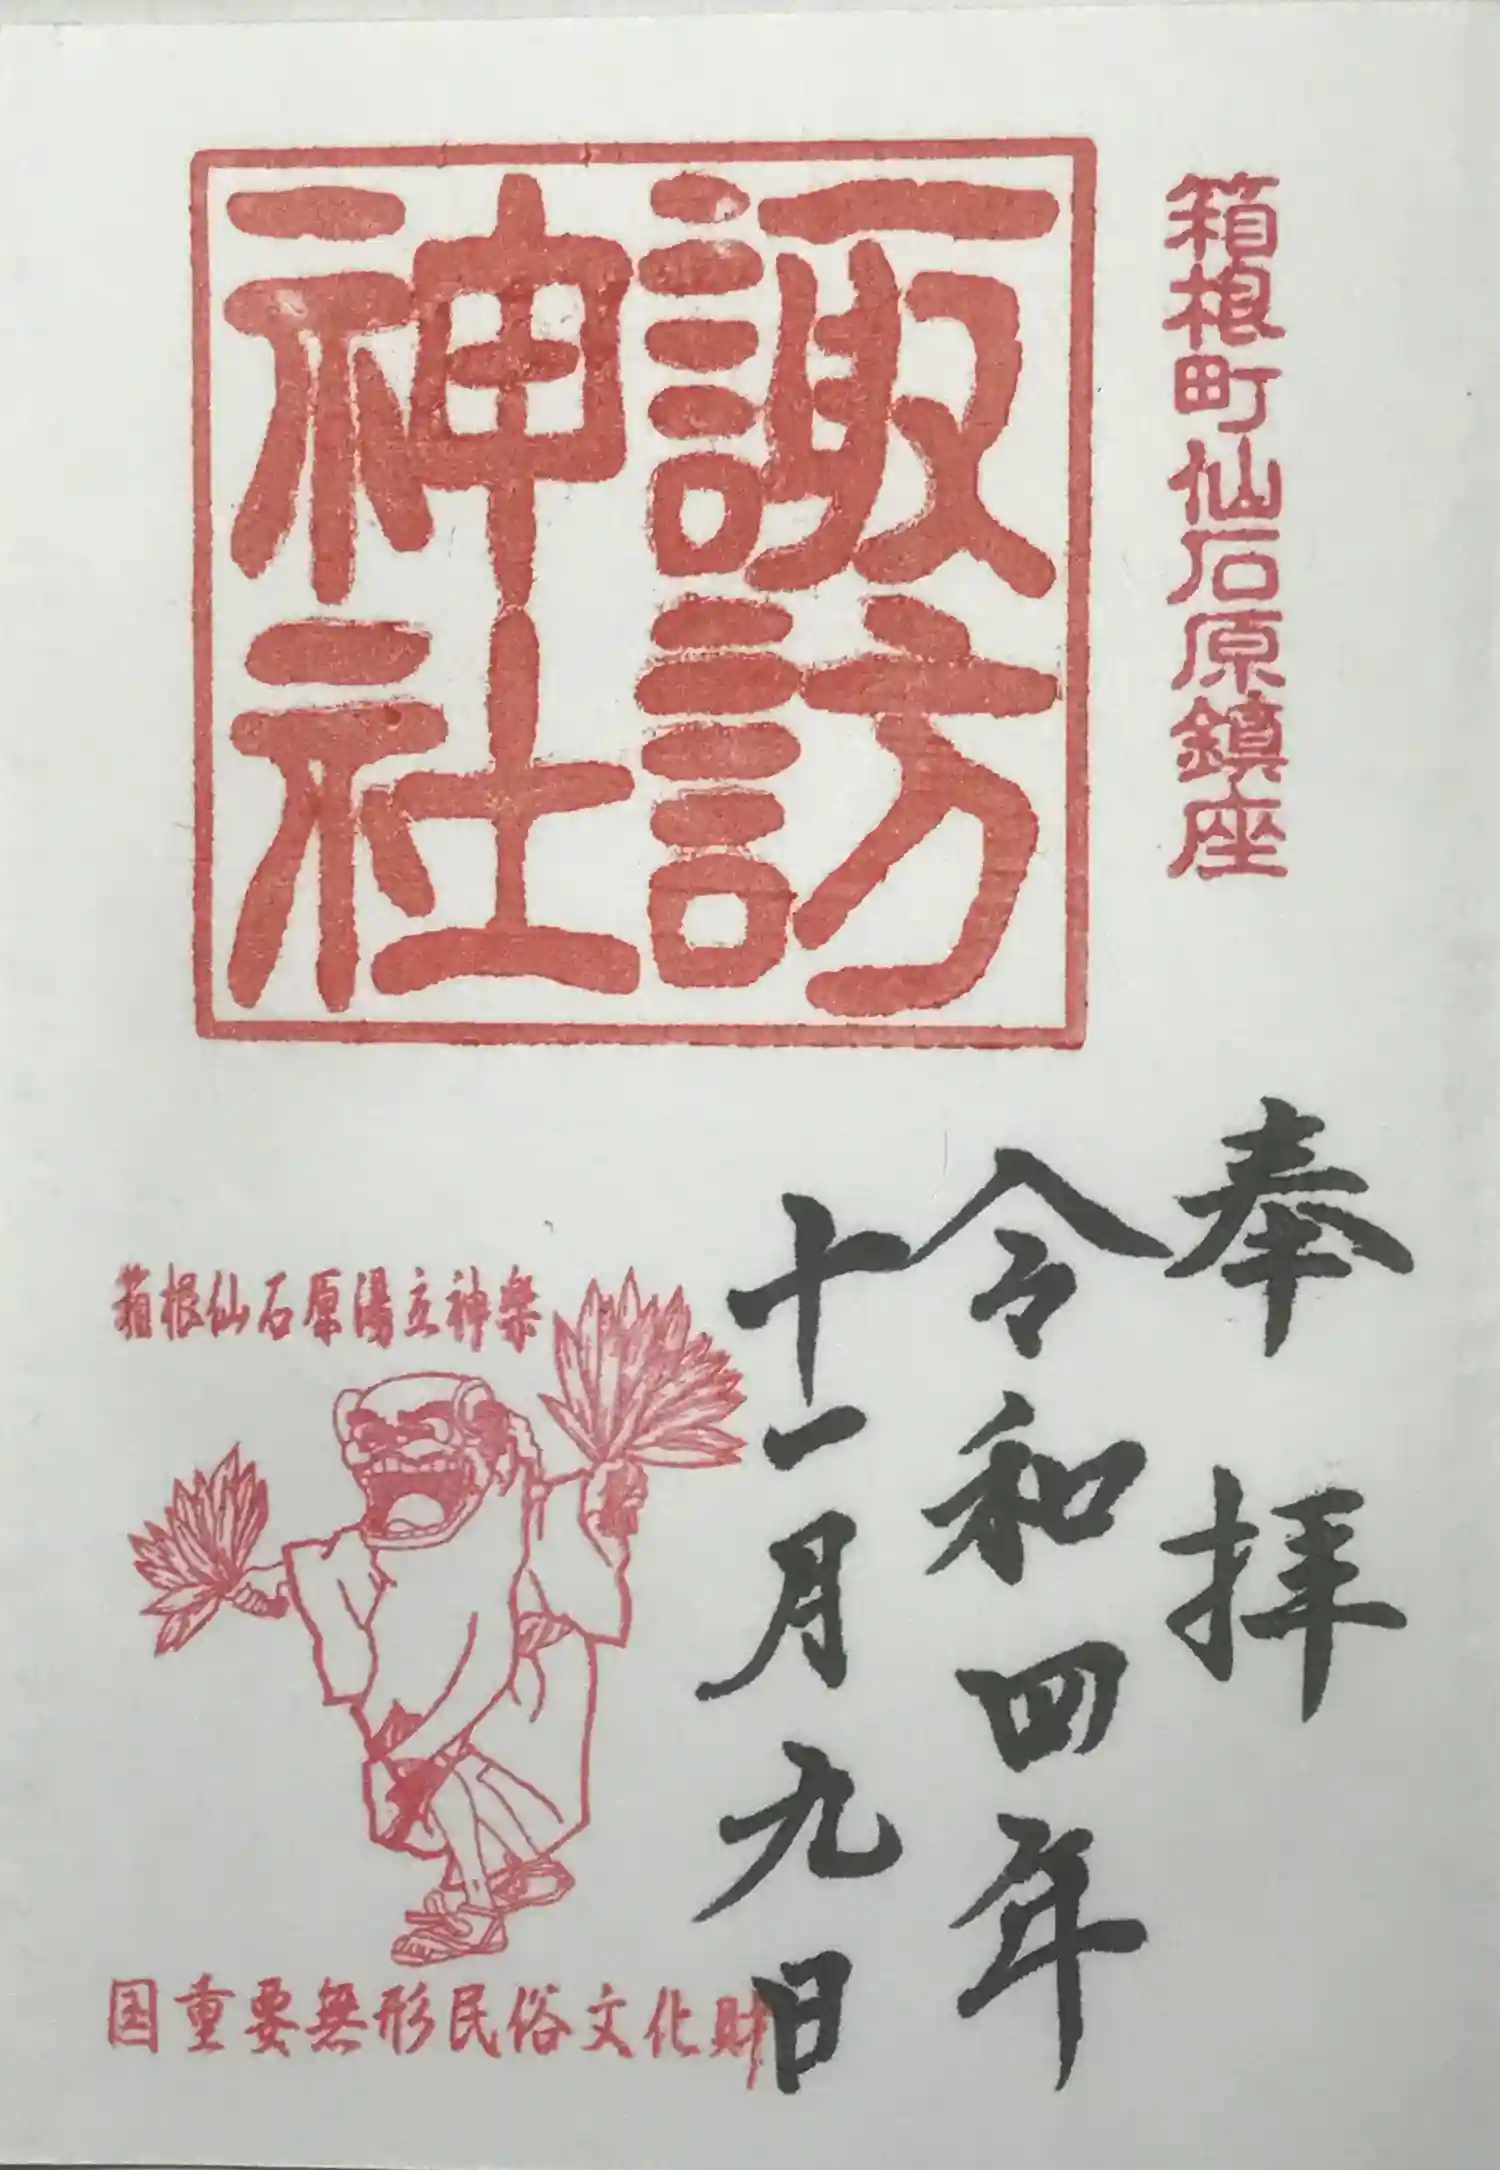 箱根町仙石原鎮座
諏訪
神社
奉拝
令和四年
十一月九日
箱根仙石原湯立神楽
国重要無形民俗文化財